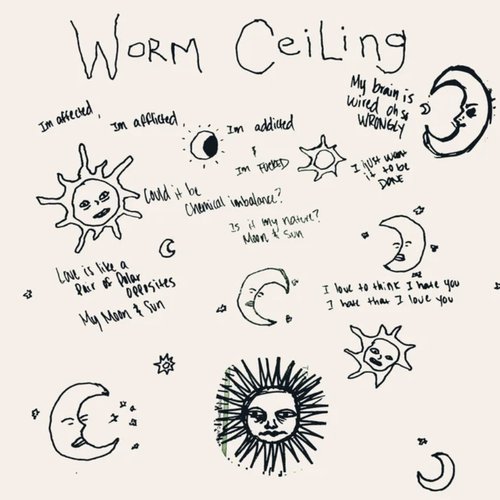 WORM CEILING
My brain is
wired oh so
WRONGLY
Im affected,
Im afflicted,
Im addicted
&
Im FUCKED
I just want
it to be
DONE
Could it be
Chemical imbalance?
Is it my nature?
Moon & Sun
Love is like a
Pair of Polar
Opposites
My Moon & Sun
I love to think I hate you
I hate that I love you